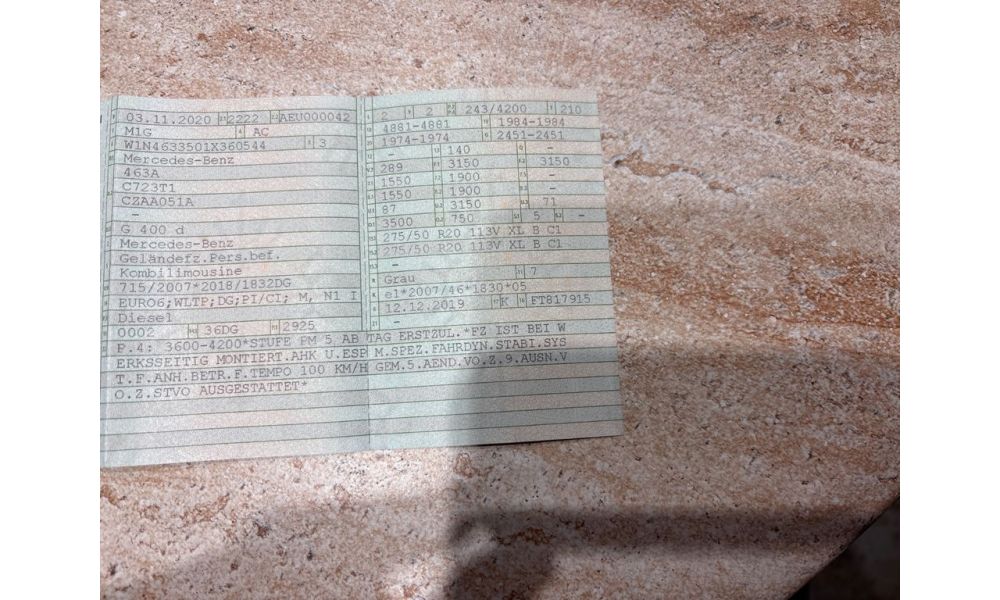 03.11.2020 2222 AEU000042
M1G AC
W1N4633501X360544 3
Mercedes-Benz
463A
C723T1
CZAA051A
-
G 400 d
Mercedes-Benz
Geländefz.Pers.bef.
Kombilimousine
715/2007*2018/1832DG
EURO6;WLTP;DG;PI/CI; M, N1 I
Diesel
0002 36DG 2925
2 2 243/4200 210
4881-4881 1984-1984
1974-1974 2451-2451
- 140 -
289 3150 3150
1550 1900 -
1550 1900 -
87 3150 71
3500 750 5 -
275/50 R20 113V XL B C1
275/50 R20 113V XL B C1
-
Grau 7
e1*2007/46*1830*05
12.12.2019 K FT817915
-
P.4: 3600-4200*STUFE PM 5 AB TAG ERSTZUL.*FZ IST BEI W
ERKSSEITIG MONTIERT.AHK U.ESP M.SPEZ.FAHRDYN.STABI.SYS
T.F.ANH.BETR.F.TEMPO 100 KM/H GEM.5.AEND.VO.Z.9.AUSN.V
O.Z.STVO AUSGESTATTET*